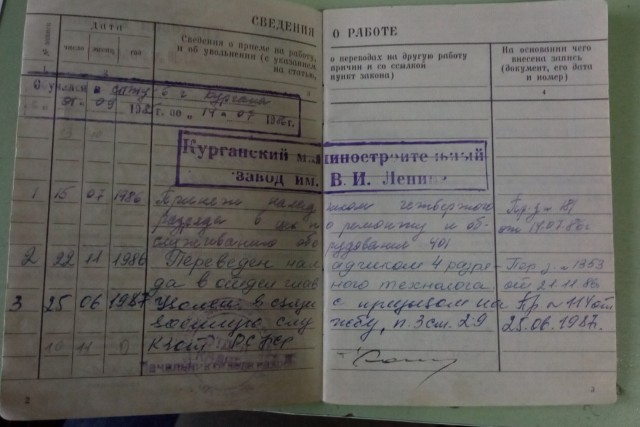 СВЕДЕНИЯ О РАБОТЕ
Дата
число месяц год
Сведения о приеме на работу,
и об увольнении (с указанием
на статью,
о переводах на другую работу
причин и со ссылкой
пункт закона)
На основании чего
внесена запись
(документ, его дата
и номер)
1 2 3 4
Обучался в г. Кургана
01 09 г. по 14 07 1986 г.
Курганский машиностроительный
завод им. В. И. Ленина
1 15 07 1986 Принят наладчиком четвертого
разряда в по ремонту и об-
служиванию оборудования 401
от 14.07.86г.
2 22 11 1986 Переведен наладчиком 4 разря-
да в отдел главного технолога
от 21.11.86
3 25 06 1987 Уволен в связи с призывом на
военную службу, п. 3 см. 29
КЗоТ РСФСР
25.06.1987г.
2
3